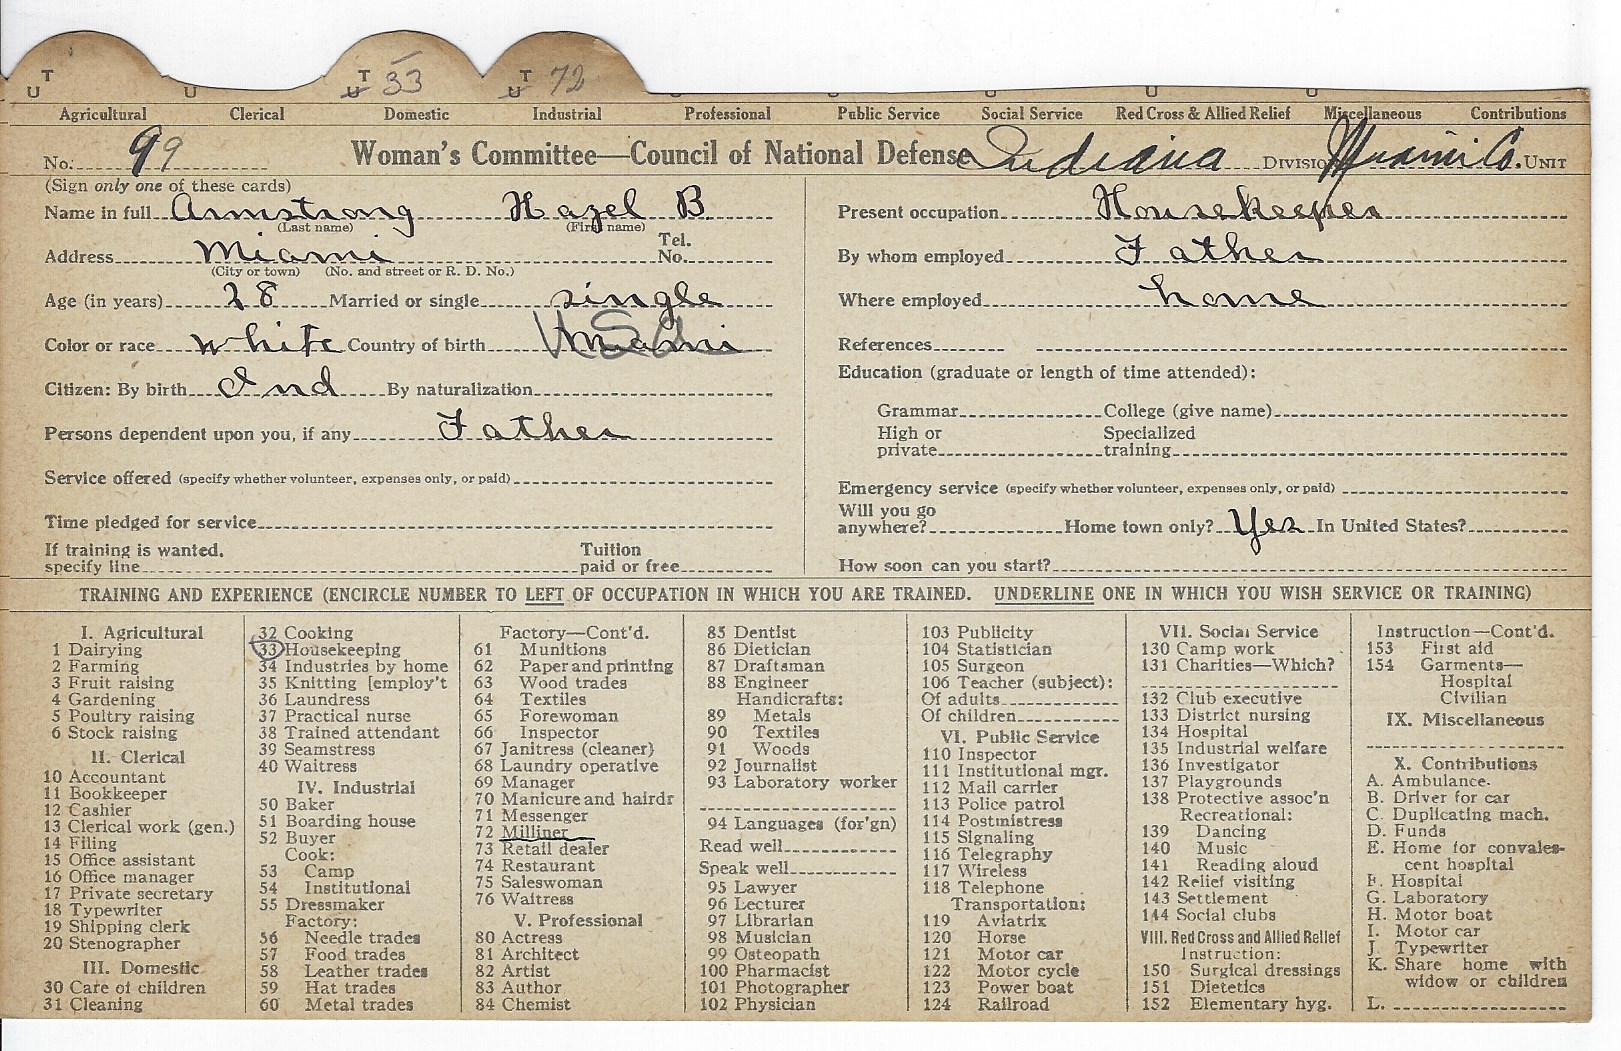 T T 33 T 72
U U U U U U U U U
Agricultural Clerical Domestic Industrial Professional Public Service Social Service Red Cross & Allied Relief Miscellaneous Contributions
No. 99 Woman's Committee—Council of National Defense Indiana DIVISION Miami Co. UNIT
(Sign only one of these cards)
Name in full Armstrong Hazel B
(Last name) (First name)
Address Miami Tel. No.
(City or town) (No. and street or R. D. No.)
Age (in years) 28 Married or single single
Color or race white Country of birth Miami USA
Citizen: By birth Ind By naturalization
Persons dependent upon you, if any Father
Service offered (specify whether volunteer, expenses only, or paid)
Time pledged for service
If training is wanted, specify line Tuition paid or free
Present occupation Housekeeper
By whom employed Father
Where employed home
References
Education (graduate or length of time attended):
Grammar College (give name)
High or private Specialized training
Emergency service (specify whether volunteer, expenses only, or paid)
Will you go anywhere? Home town only? Yes In United States?
How soon can you start?
TRAINING AND EXPERIENCE (ENCIRCLE NUMBER TO LEFT OF OCCUPATION IN WHICH YOU ARE TRAINED. UNDERLINE ONE IN WHICH YOU WISH SERVICE OR TRAINING)
I. Agricultural
1 Dairying
2 Farming
3 Fruit raising
4 Gardening
5 Poultry raising
6 Stock raising
II. Clerical
10 Accountant
11 Bookkeeper
12 Cashier
13 Clerical work (gen.)
14 Filing
15 Office assistant
16 Office manager
17 Private secretary
18 Typewriter
19 Shipping clerk
20 Stenographer
III. Domestic
30 Care of children
31 Cleaning
32 Cooking
33 Housekeeping
34 Industries by home
35 Knitting [employ't
36 Laundress
37 Practical nurse
38 Trained attendant
39 Seamstress
40 Waitress
IV. Industrial
50 Baker
51 Boarding house
52 Buyer
Cook:
53 Camp
54 Institutional
55 Dressmaker
Factory:
56 Needle trades
57 Food trades
58 Leather trades
59 Hat trades
60 Metal trades
Factory—Cont'd.
61 Munitions
62 Paper and printing
63 Wood trades
64 Textiles
65 Forewoman
66 Inspector
67 Janitress (cleaner)
68 Laundry operative
69 Manager
70 Manicure and hairdr
71 Messenger
72 Milliner
73 Retail dealer
74 Restaurant
75 Saleswoman
76 Waitress
V. Professional
80 Actress
81 Architect
82 Artist
83 Author
84 Chemist
85 Dentist
86 Dietician
87 Draftsman
88 Engineer
Handicrafts:
89 Metals
90 Textiles
91 Woods
92 Journalist
93 Laboratory worker
94 Languages (for'gn)
Read well
Speak well
95 Lawyer
96 Lecturer
97 Librarian
98 Musician
99 Osteopath
100 Pharmacist
101 Photographer
102 Physician
103 Publicity
104 Statistician
105 Surgeon
106 Teacher (subject):
Of adults
Of children
VI. Public Service
110 Inspector
111 Institutional mgr.
112 Mail carrier
113 Police patrol
114 Postmistress
115 Signaling
116 Telegraphy
117 Wireless
118 Telephone
Transportation:
119 Aviatrix
120 Horse
121 Motor car
122 Motor cycle
123 Power boat
124 Railroad
VII. Social Service
130 Camp work
131 Charities—Which?
132 Club executive
133 District nursing
134 Hospital
135 Industrial welfare
136 Investigator
137 Playgrounds
138 Protective assoc'n
Recreational:
139 Dancing
140 Music
141 Reading aloud
142 Relief visiting
143 Settlement
144 Social clubs
VIII. Red Cross and Allied Relief
Instruction:
150 Surgical dressings
151 Dietetics
152 Elementary hyg.
Instruction—Cont'd.
153 First aid
154 Garments—
Hospital
Civilian
IX. Miscellaneous
X. Contributions
A. Ambulance.
B. Driver for car
C. Duplicating mach.
D. Funds
E. Home for convales-
cent hospital
F. Hospital
G. Laboratory
H. Motor boat
I. Motor car
J. Typewriter
K. Share home with
widow or children
L.